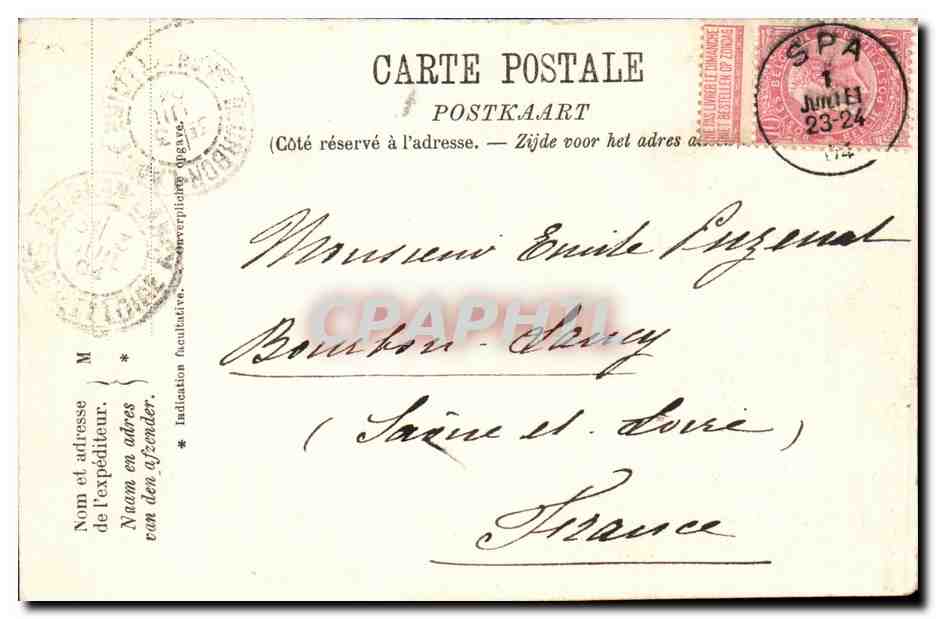 CARTE POSTALE
POSTKAART
(Côté réservé à l'adresse. — Zijde voor het adres
NE PAS LIVRER LE DIMANCHE
NIET BESTELLEN OP ZONDAG
SPA
1
JUILLET
23-24
04
Monsieur Emile
Bourbon-Lancy
(Saône et-Loire)
France
CPAPHIL
Nom et adresse
de l'expéditeur.
M
Naam en adres
van den afzender.
*
* Indication facultative. — Onverplichte opgave.